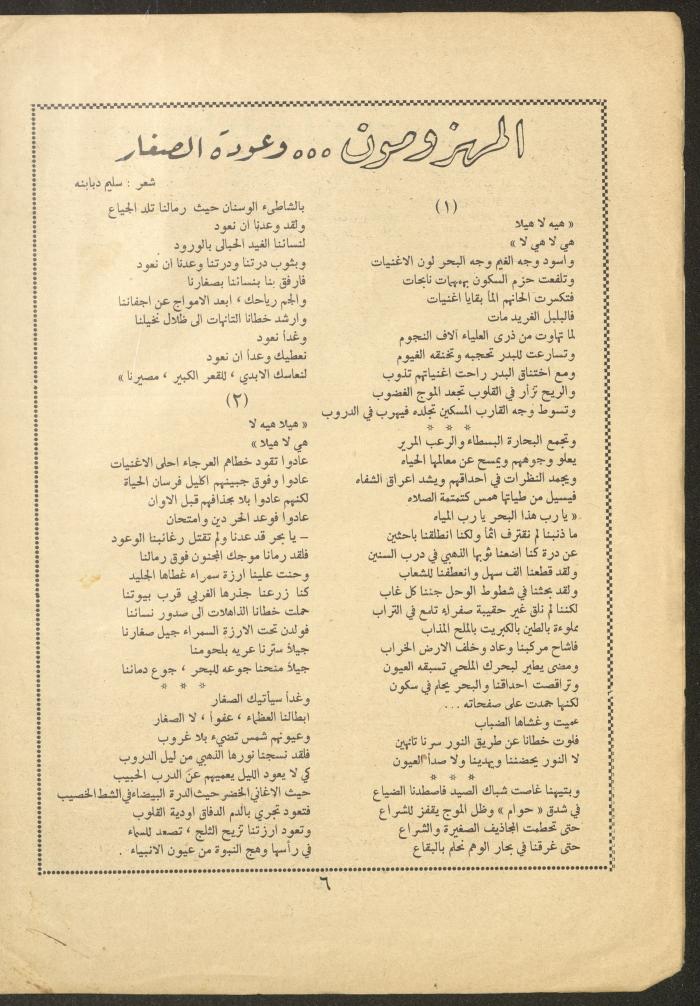 المهزومون ... وعودة الصغار
شعر : سليم دبابنه
(١)
« هيه لا هيلا
هي لا هي لا »
واسود وجه الغيم وجه البحر لون الاغنيات
وتلفعت حزم السكون بهمهمات نابحات
فتكسرت الحانهم الماً بقايا اغنيات
فالبلبل الغريد مات
لما تهاوت من ذرى العلياء آلاف النجوم
وتسارعت للبدر تحجبه وتخنقه الغيوم
ومع اختناق البدر راحت اغنياتهم تذوب
والريح تزأر في القلوب تجعد الموج الغضوب
وتسوط وجه القارب المسكين تجلده فيهرب في الدروب
* * *
وتجمع البحارة البسطاء والرعب المرير
يعلو وجوههم ويمسح عن معالمها الحياه
ويجمد النظرات في احداقهم ويشد اعراق الشفاه
فيسيل من طياتها همس كتمتمة الصلاه
« يا رب هذا البحر يا رب المياه
ما ذنبنا لم نقترف اثماً ولكنا انطلقنا باحثين
عن درة كنا اضعنا ثوبها الذهبي في درب السنين
ولقد قطعنا الف سهل وانعطفنا للشعاب
ولقد بحثنا في شطوط الوحل جئنا كل غاب
لكننا لم نلق غير حقيبة صفراء تلمع في التراب
مملوءة بالطين بالكبريت بالملح المذاب
فاشاح مركبنا وعاد وخلف الارض الخراب
ومضى يطير لبحرك الملحي تسبقه العيون
وتراقصت احداقنا والبحر يحلم في سكون
لكنها جمدت على صفحاته ...
عميت وغشاها الضباب
فلوت خطانا عن طريق النور سرنا تائهين
لا النور يحضننا ويهدينا ولا صدأ العيون
* * *
وبتيهنا غاصت شباك الصيد فاصطدنا الضياع
في شدق « حوام » وظل الموج يقفز للشراع
حتى تحطمت المجاذيف الصغيرة والشراع
حتى غرقنا في بحار الوهم نحلم بالبقاع
بالشاطىء الوسنان حيث رمالنا تلد الجياع
ولقد وعدنا ان نعود
لنسائنا الغيد الحبالى بالورود
وبثوب درتنا ودرتنا وعدنا ان نعود
فارفق بنا بنسائنا بصغارنا
والجم رياحك ، ابعد الامواج عن اجفاننا
وارشد خطانا التائهات الى ظلال نخيلنا
وغداً نعود
نعطيك وعداً ان نعود
لنعاسك الابدي ، للقعر الكبير ، مصيرنا »
(٢)
« هيلا هيه لا
هي لا هيلا »
عادوا تقود خطاهم العرجاء احلى الاغنيات
عادوا وفوق جبينهم اكليل فرسان الحياة
لكنهم عادوا بلا مجذافهم قبل الاوان
عادوا فوعد الحر دين وامتحان
– يا بحر قد عدنا ولم تقتل رغائبنا الوعود
فلقد رمانا موجك المجنون فوق رمالنا
وحنت علينا ارزة سمراء غطاها الجليد
كنا زرعنا جذرها الغربي قرب بيوتنا
حملت خطانا الذاهلات الى صدور نسائنا
فولدن تحت الارزة السمراء جيل صغارنا
وجيلاً سترنا عريه بلحومنا
جيلاً منحنا جوعه للبحر ، جوع دمائنا
* * *
وغداً سيأتيك الصغار
ابطالنا العظماء ، عفواً ، لا الصغار
وعيونهم شمس تضيء بلا غروب
فلقد نسجنا نورها الذهبي من ليل الدروب
كي لا يعود الليل يعميهم عن الدرب الحبيب
حيث الاغاني الخضر حيث الدرة البيضاء في الشط الخصيب
فتعود تجري بالدم الدفاق اودية القلوب
وتعود ارزتنا تزيح الثلج ، تصعد للسماء
في رأسها وهج النبوة من عيون الانبياء .
٦